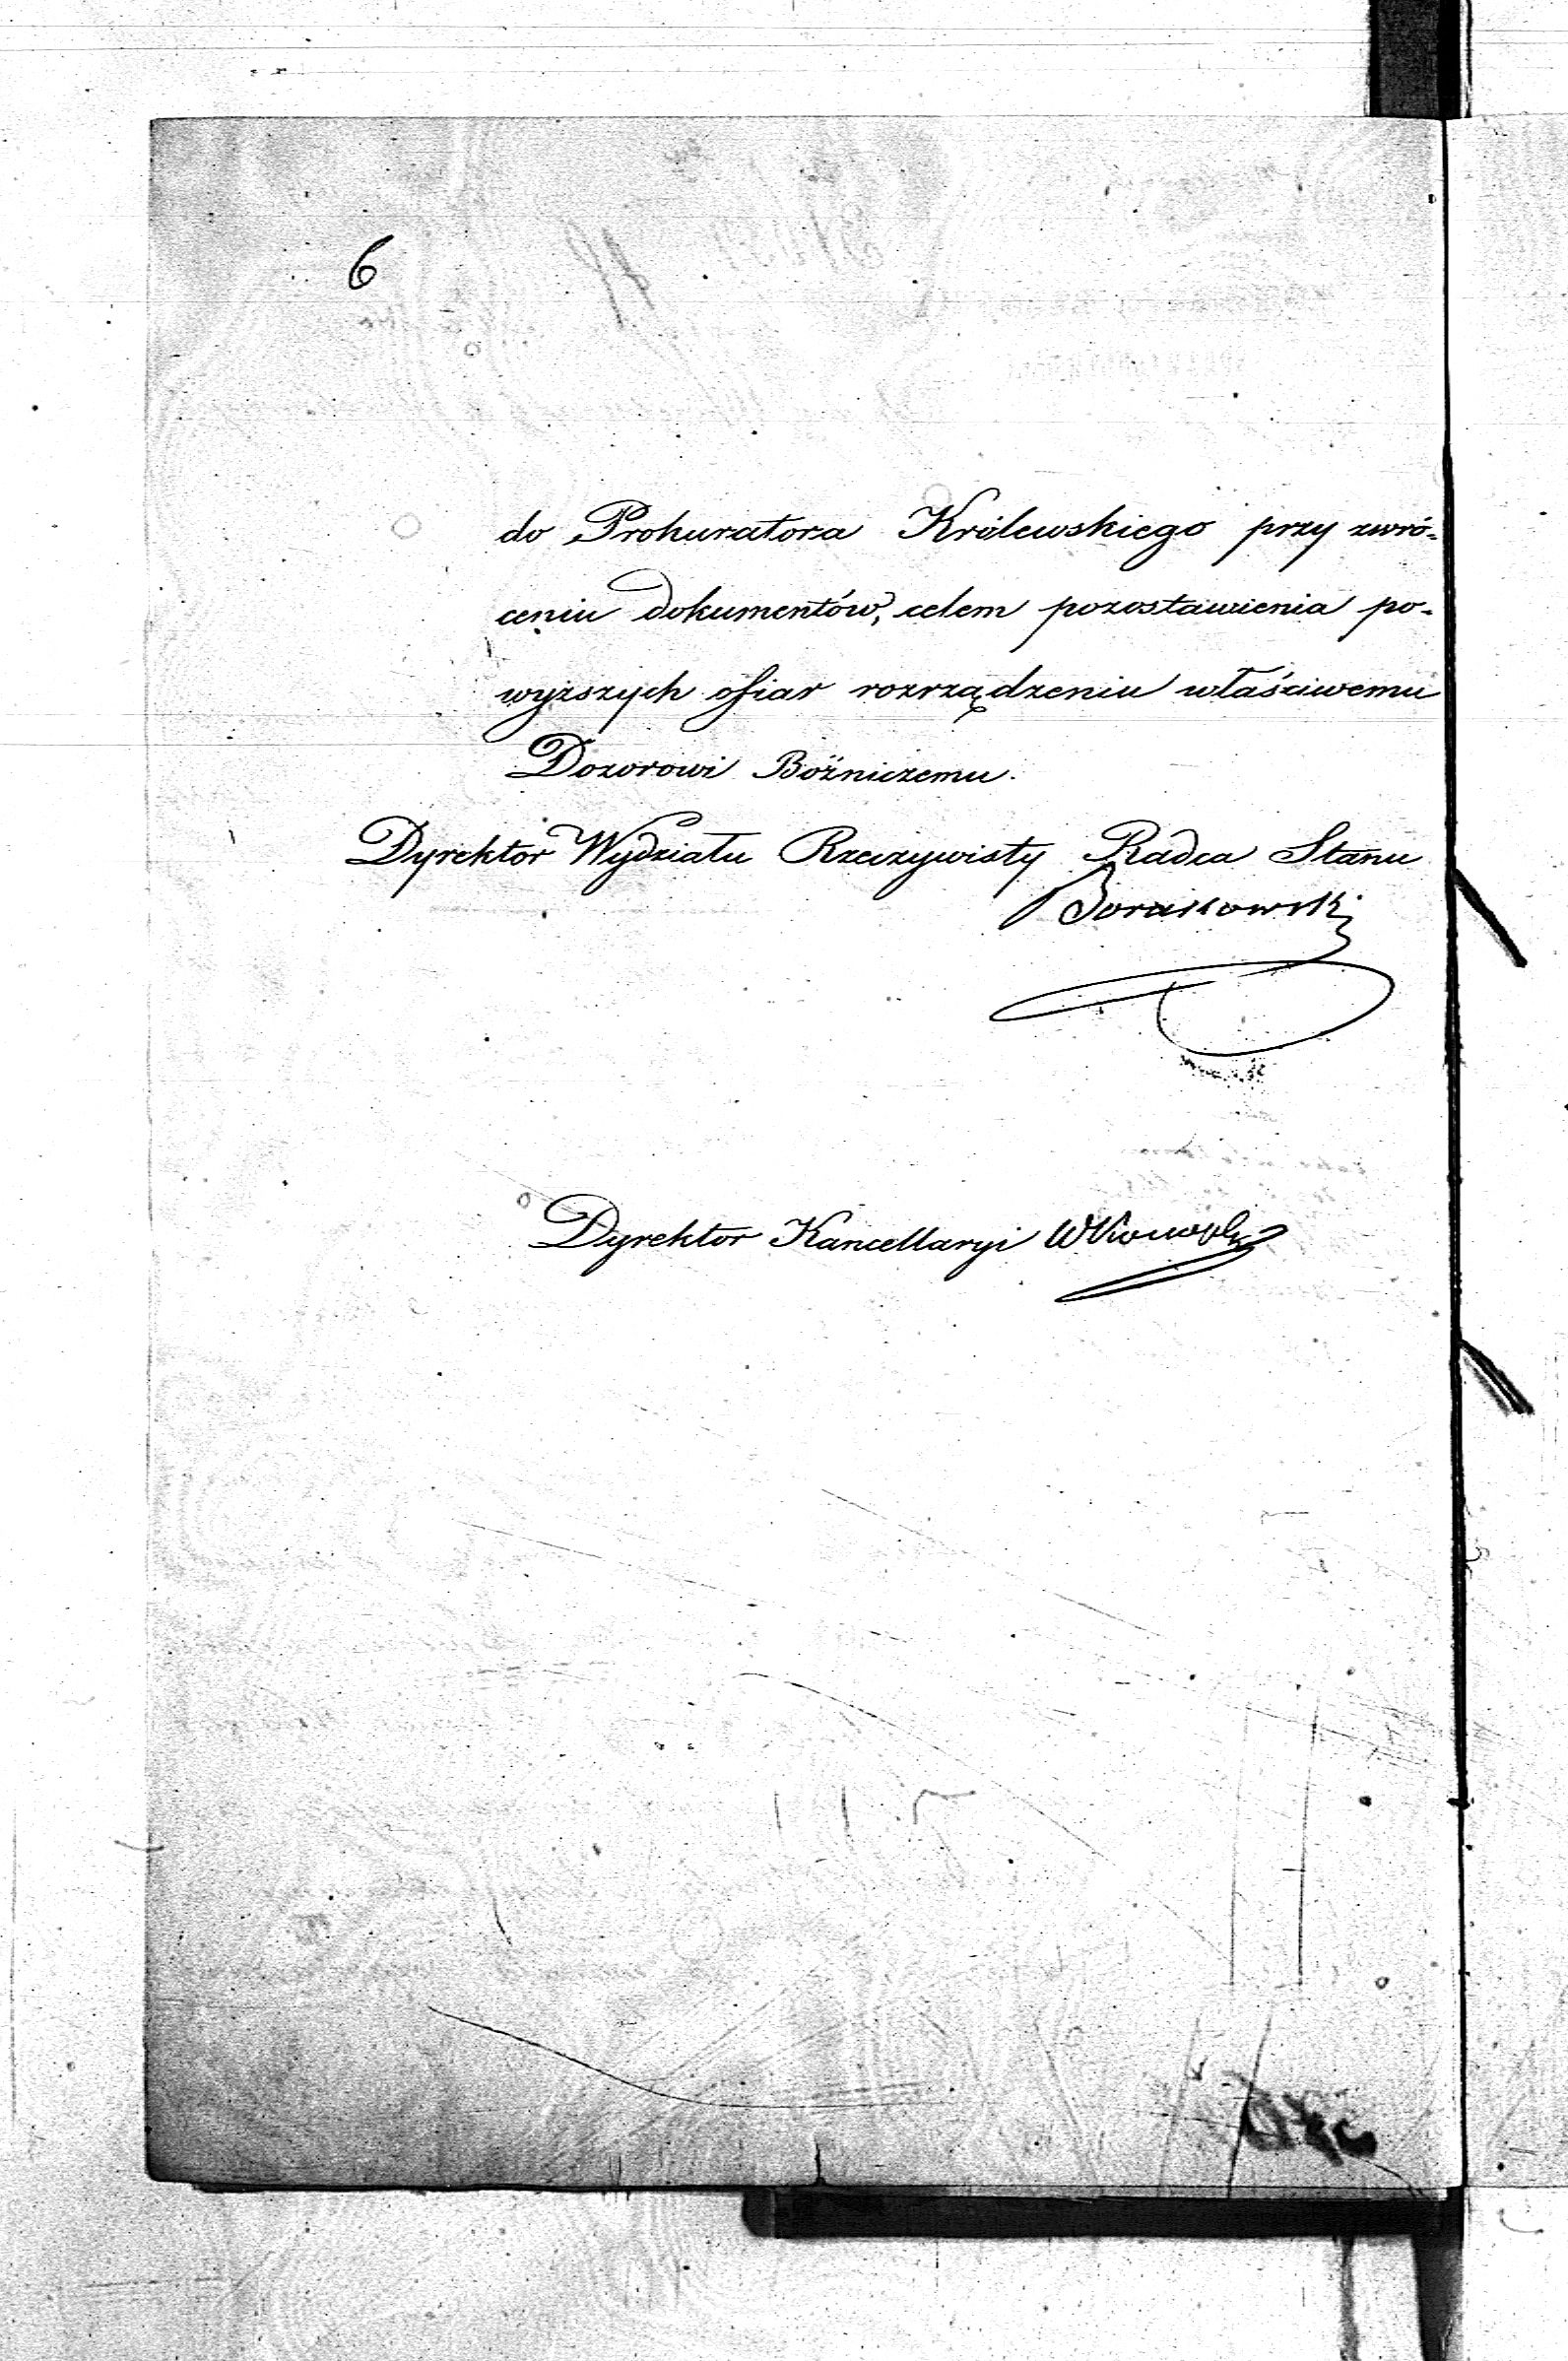 6
do Prokuratora Królewskiego przy zwró-
ceniu dokumentów, celem pozostawienia po-
wyższych ofiar rozrządzeniu właściwemu
Dozorowi Bóżniczemu.
Dyrektor Wydziału Rzeczywisty Radca Stanu
Dyrektor Kancellaryi